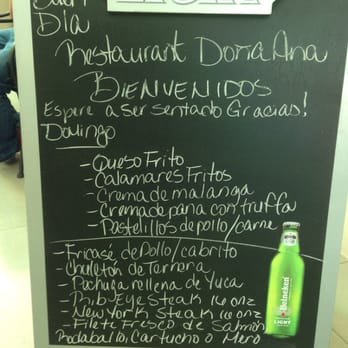 Buen
Día
Restaurant Doña Ana
BIENVENIDOS
Espere a ser sentado Gracias!
Domingo
- Queso Frito
- Calamares Fritos
- Crema de malanga
- Crema de pana con truffa
- Pastelillos de pollo/carne
- Fricasé de Pollo/cabrito
- Chuletón de Ternera
- Pechuga rellena de Yuca
- Rib Eye Steak 16 onz
- New York Steak 16 onz
- Filete Fresco de Salmón,
Rodaballo, Cartucho o Mero
Heineken
LIGHT